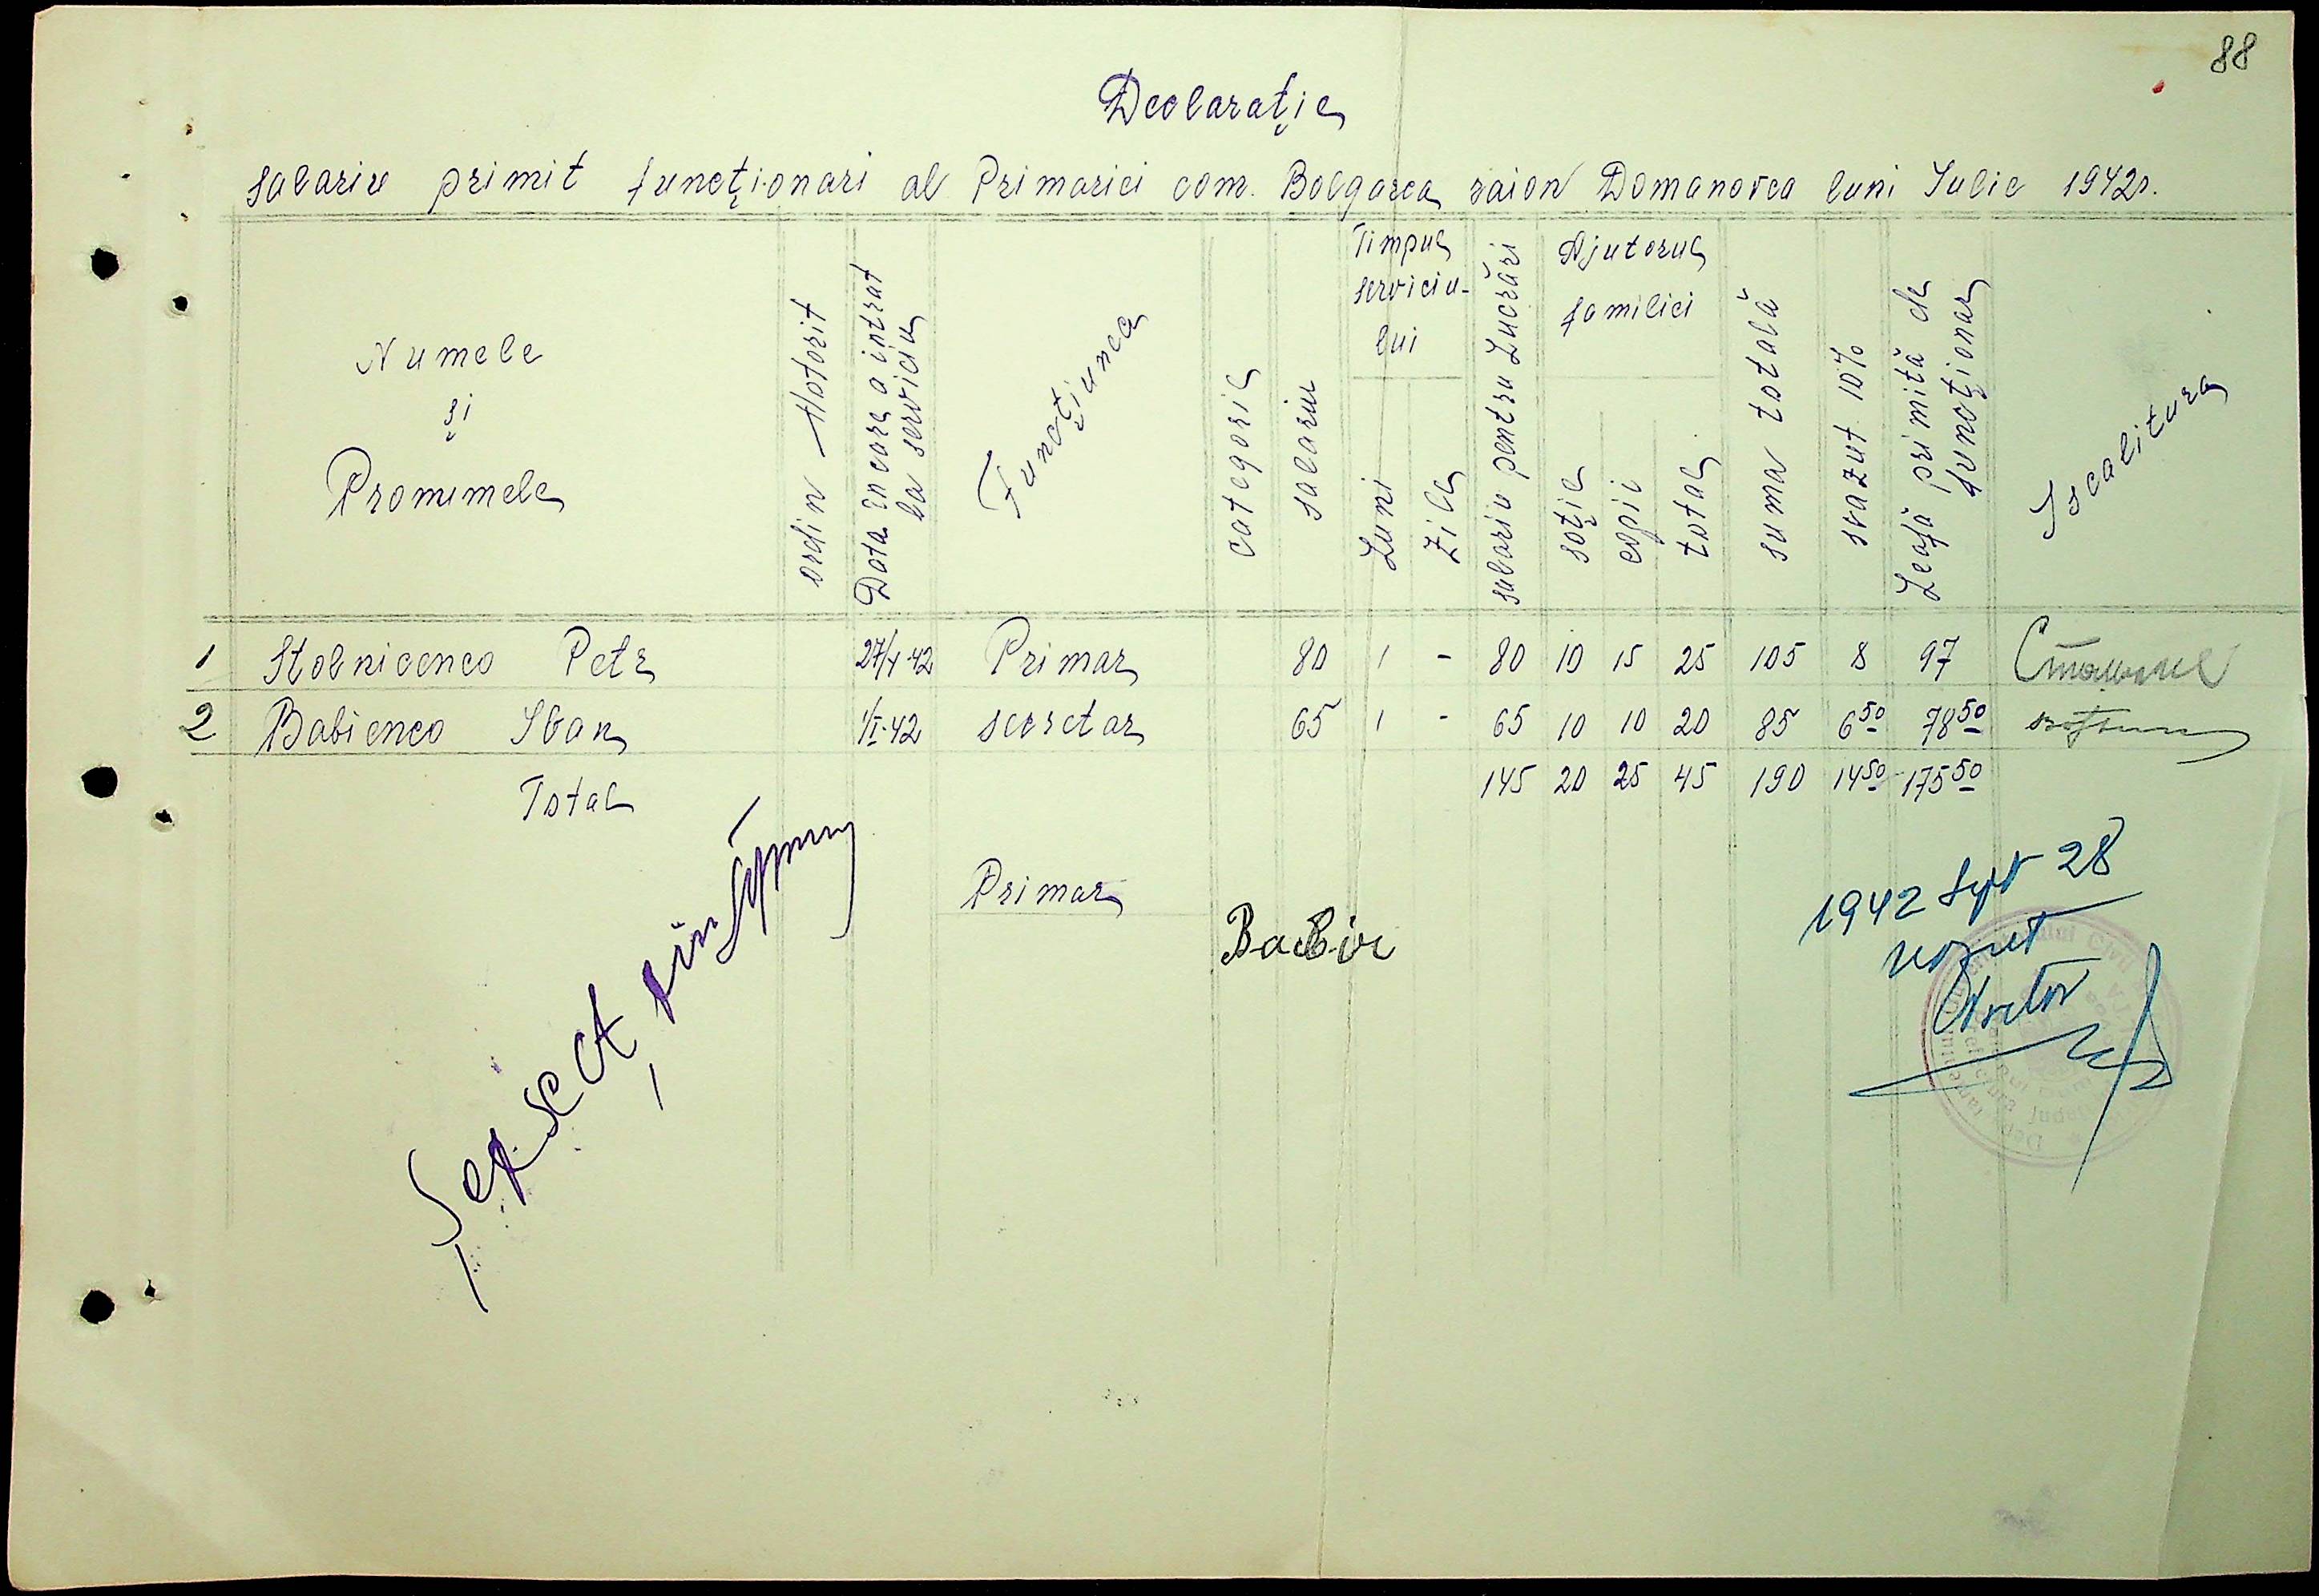 88
Declaratie
salariu primit funcţionari al Primariei com. Bolgarca raion Domanovca luni Iulie 1942 r.
Numele
şi
Pronumele
ordin Hotorit
Data în care a intrat
la serviciu
Funcţiunea
categorie
salariu
Timpul
serviciu-
lui
Luni
Zile
salariu pentru Lucrări
Ajutorul
familiei
soţie
copii
total
suma totală
svazut 10%
Leafa primită de
funcţionar
Iscalitura
1 Stolnicenco Petr 27/V-42 Primar 80 1 - 80 10 15 25 105 8 97
2 Babienco Ivan 1/I-42 secretar 65 1 - 65 10 10 20 85 6 50 78 50
Total 145 20 25 45 190 14 50 175 50
Primar
1942 Sept 28